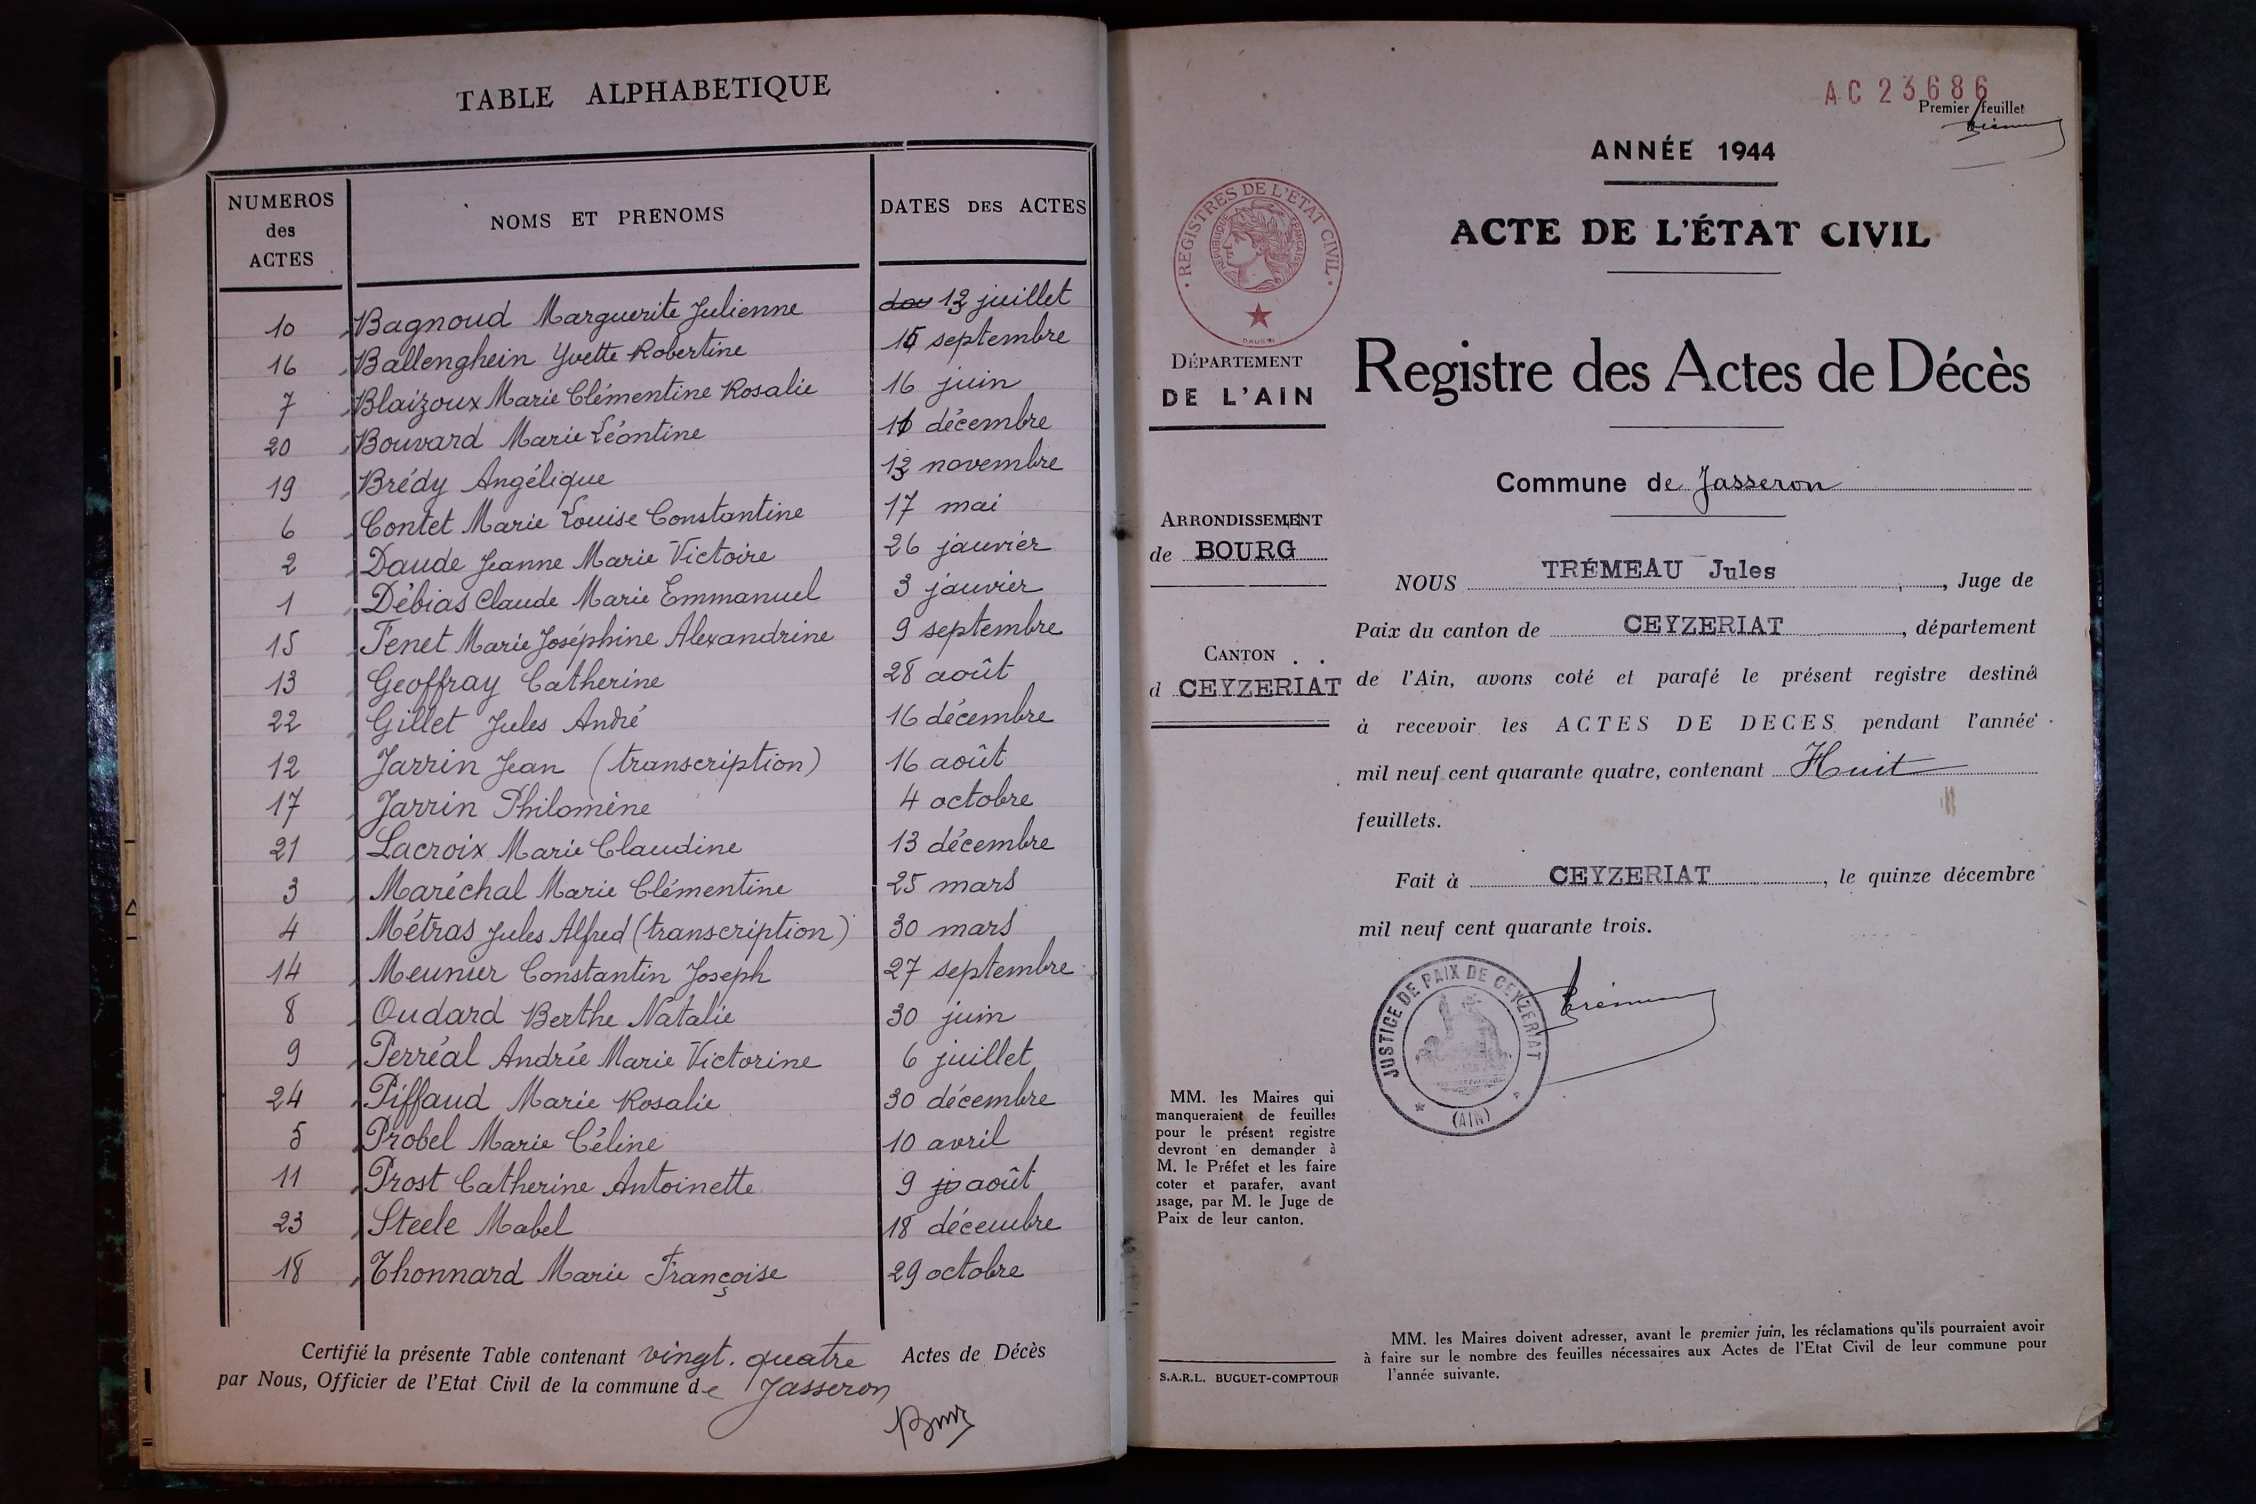 TABLE ALPHABETIQUE
NUMEROS des ACTES NOMS ET PRENOMS DATES DES ACTES
10 Bagnoud Marguerite Julienne 12 juillet
16 Ballenghein Yvette Robertine 15 septembre
7 Blaizoux Marie Clémentine Rosalie 16 juin
20 Bouvard Marie Léontine décembre
19 Brédy Angélique novembre
6 Contet Marie Louise Constantine 17 mai
2 Daude Jeanne Marie Victoire 26 janvier
1 Débias Claude Marie Emmanuel 3 janvier
15 Fenet Marie Joséphine Alexandrine 9 septembre
13 Geoffray Catherine 28 août
22 Gillet Jules André 16 décembre
12 Jarrin Jean (transcription) 16 août
17 Jarrin Philomène 4 octobre
21 Lacroix Marie Claudine 13 décembre
3 Maréchal Marie Clémentine 25 mars
4 Métras Jules Alfred (transcription) 30 mars
14 Meunier Constantin Joseph 27 septembre
8 Oudard Berthe Natalie 30 juin
9 Perréal Andrée Marie Victorine 6 juillet
24 Piffaud Marie Rosalie 30 décembre
5 Probel Marie Céline 10 avril
11 Prost Catherine Antoinette 9 août
23 Steele Mabel 18 décembre
18 Thonnard Marie Françoise 29 octobre
Certifié la présente Table contenant vingt.quatre Actes de Décès
par Nous, Officier de l'Etat Civil de la commune de Jasseron
AC 23686
Premier feuillet
ANNÉE 1944
ACTE DE L'ÉTAT CIVIL
REGISTRES DE L'ETAT CIVIL
REPUBLIQUE FRANÇAISE
DÉPARTEMENT
DE L'AIN
Registre des Actes de Décès
Commune de Jasseron
ARRONDISSEMENT
de BOURG
CANTON
d CEYZERIAT
NOUS TRÉMEAU Jules, Juge de
Paix du canton de CEYZERIAT, département
de l'Ain, avons coté et parafé le présent registre destiné
à recevoir les ACTES DE DECES pendant l'année
mil neuf cent quarante quatre, contenant Huit
feuillets.
Fait à CEYZERIAT, le quinze décembre
mil neuf cent quarante trois.
JUSTICE DE PAIX DE CEYZERIAT
(AIN)
MM. les Maires qui
manqueraient de feuilles
pour le présent registre
devront en demander à
M. le Préfet et les faire
coter et parafer, avant
usage, par M. le Juge de
Paix de leur canton.
S.A.R.L. BUGUET-COMPTOUR
MM. les Maires doivent adresser, avant le premier juin, les réclamations qu'ils pourraient avoir
à faire sur le nombre des feuilles nécessaires aux Actes de l'Etat Civil de leur commune pour
l'année suivante.